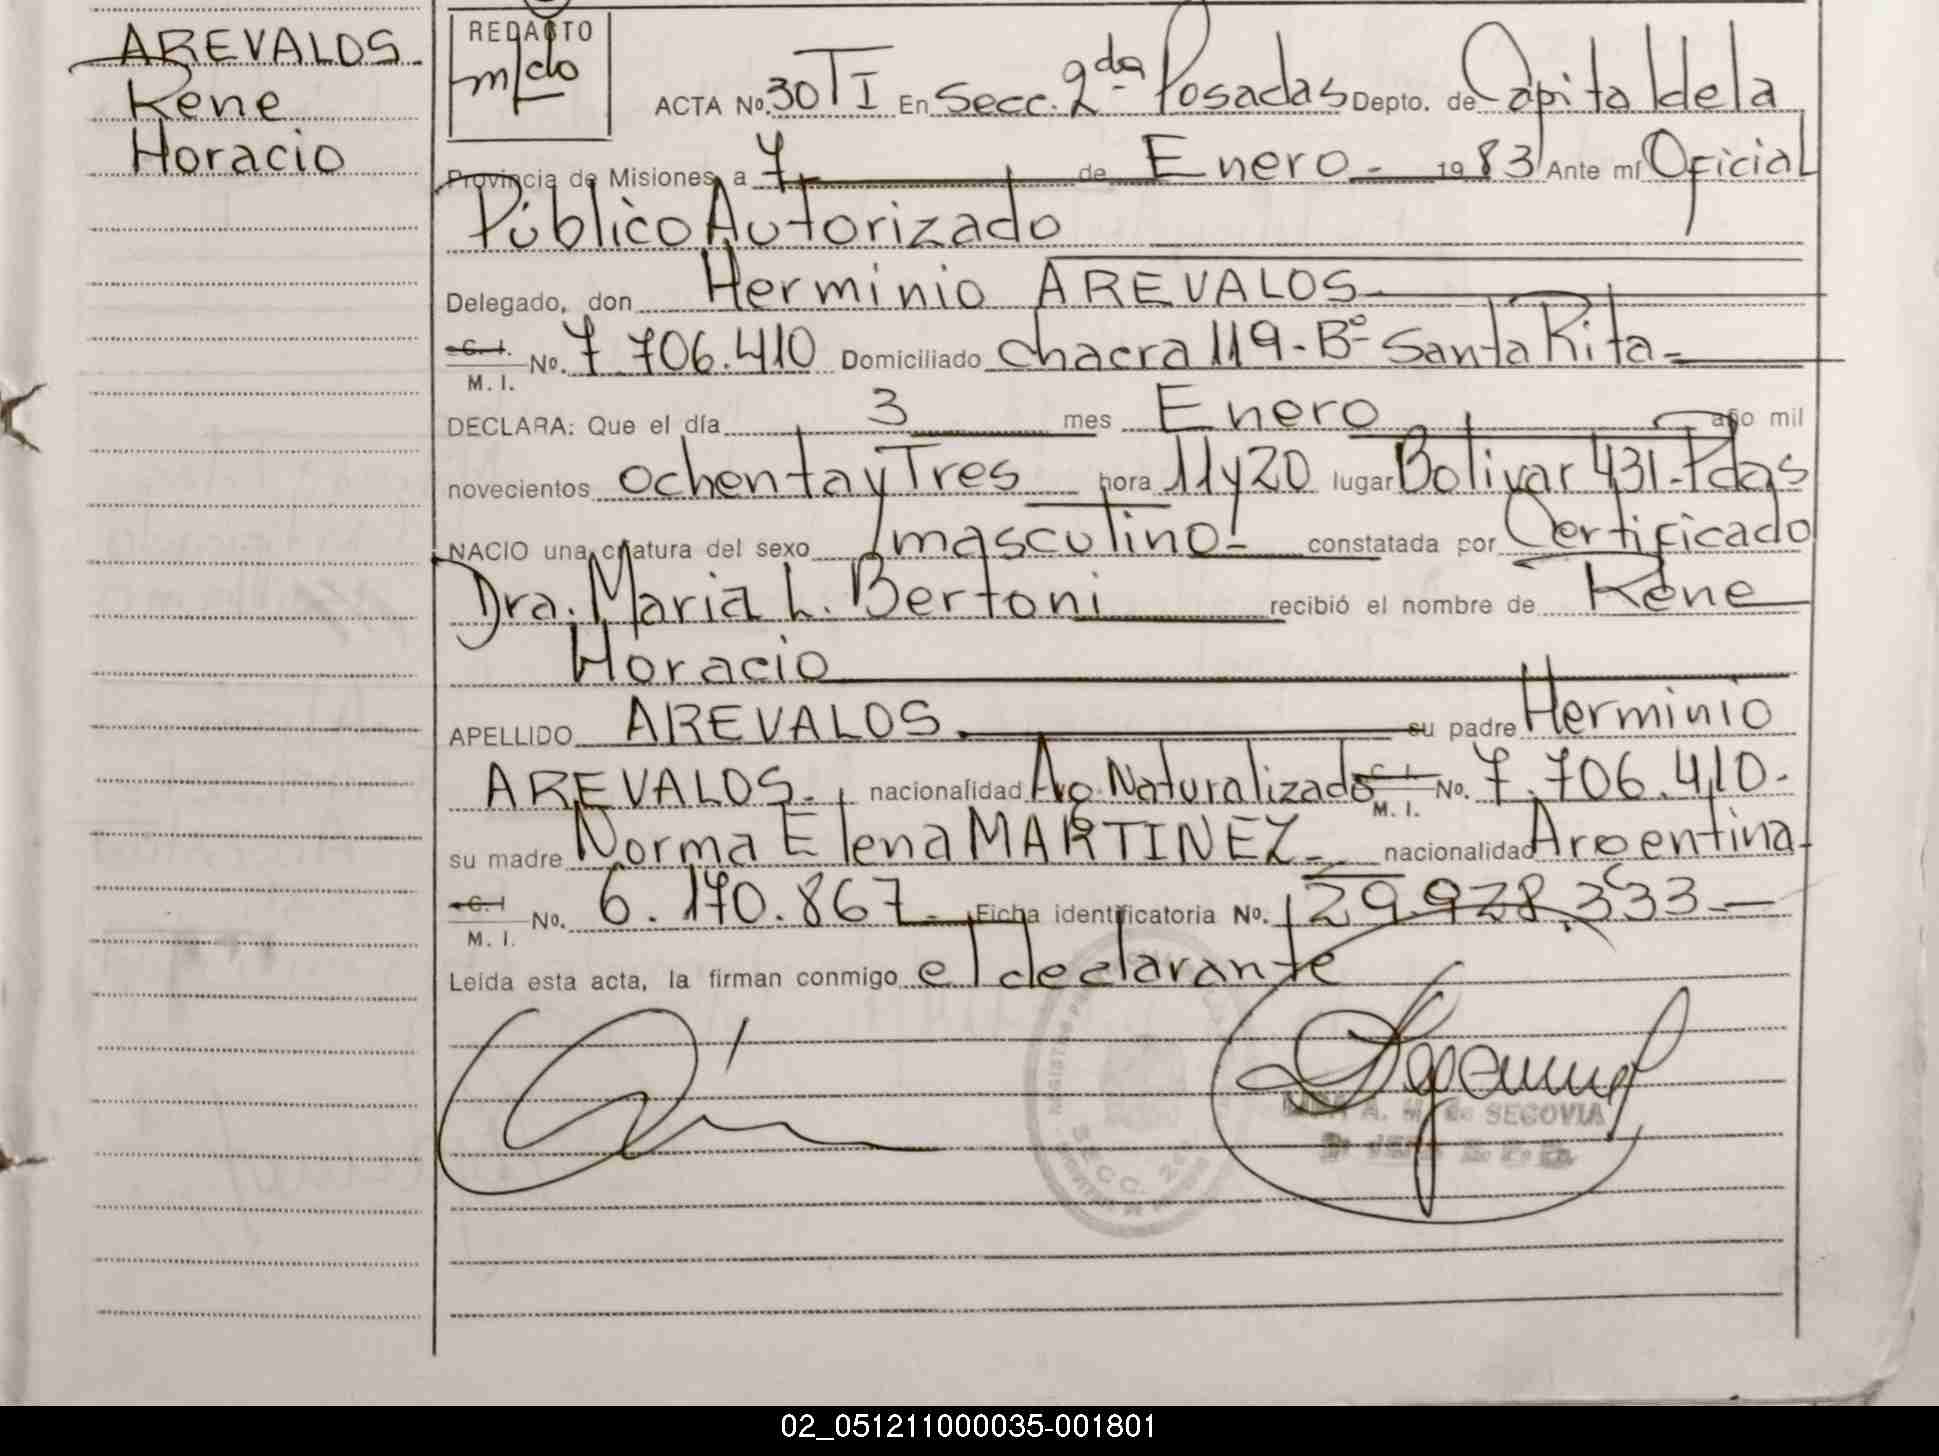 AREVALOS.
Rene
Horacio
REDACTO
ACTA No. 30 TI En Secc. 2da Posadas Depto. de Capital de la
Provincia de Misiones, a 7 de Enero - 1983 Ante mí Oficial
Público Autorizado
Delegado, don Herminio AREVALOS
C. I.
M. I.
No. 7.706.410 Domiciliado chacra 119 - Bº Santa Rita -
DECLARA: Que el día 3 mes Enero año mil
novecientos ochenta y Tres hora 11 y 20 lugar Bolivar 431 - Pdas
NACIO una criatura del sexo masculino - constatada por Certificado
Dra. Maria L. Bertoni recibió el nombre de Rene
Horacio
APELLIDO AREVALOS. su padre Herminio
AREVALOS. nacionalidad Ag. Naturalizado C. I.
M. I.
No. 7.706.410.
su madre Norma Elena MARTINEZ - nacionalidad Argentina
C. I
M. I.
No. 6.170.867. Ficha identificatoria No. 29.928.333 -
Leída esta acta, la firman conmigo el declarante
SECC. 2da
A. M. de SEGOVIA
02_051211000035-001801